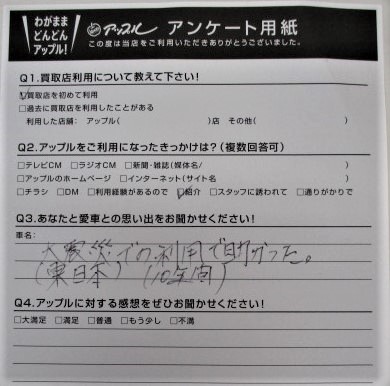 わがまま
どんどん
アップル!
アップル アンケート用紙
この度は当店をご利用いただきありがとうございました。
Q1.買取店利用について教えて下さい!
☑買取店を初めて利用
□過去に買取店を利用したことがある
利用した店舗: アップル( )店 その他( )
Q2.アップルをご利用になったきっかけは?(複数回答可)
□テレビCM □ラジオCM □新聞・雑誌(媒体名/ )
□アップルのホームページ □インターネット(サイト名 )
□チラシ □DM □利用経験があるので ☑紹介 □スタッフに誘われて □通りがかりで
Q3.あなたと愛車との思い出をお聞かせください!
車名:
大震災での利用で助かった。
(東日本) (10年間)
Q4.アップルに対する感想をぜひお聞かせください!
□大満足 □満足 □普通 □もう少し □不満